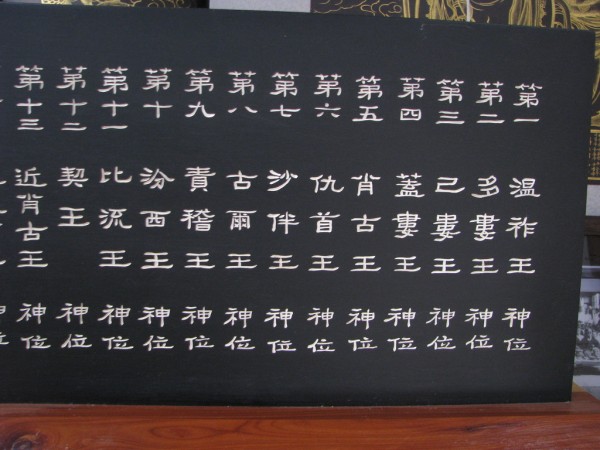 第一 温祚王 神位
第二 多婁王 神位
第三 己婁王 神位
第四 蓋婁王 神位
第五 肖古王 神位
第六 仇首王 神位
第七 沙伴王 神位
第八 古爾王 神位
第九 責稽王 神位
第十 汾西王 神位
第十一 比流王 神位
第十二 契王 神位
第十三 近肖古王 神位